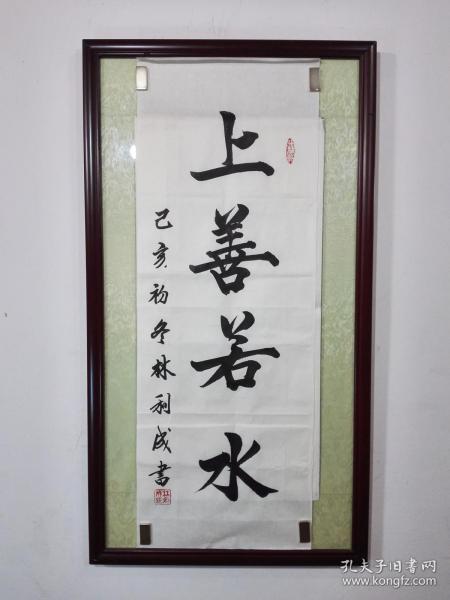 上善若水
己亥初冬林利成書
孔夫子旧书网
www.kongfz.com